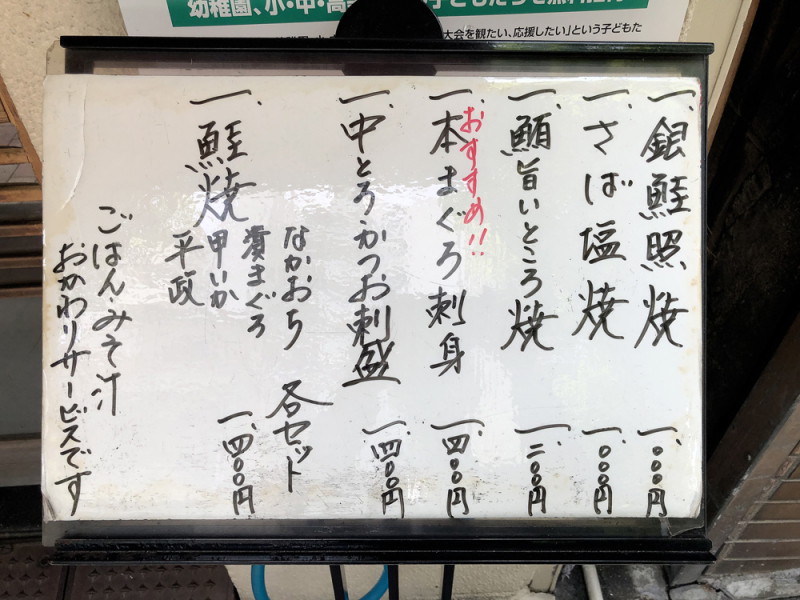 幼稚園、小・中・高
大会を観たい、応援したい」という子どもた
一、銀鮭照焼 一、〇〇〇円
一、さば塩焼 一、〇〇〇円
一、鮪旨いところ焼 一、二〇〇円
おすすめ!!
一、本まぐろ刺身 一、四〇〇円
一、中とろかつお刺盛 一、四〇〇円
一、鮭焼
なかおち
まぐろ
甲いか
平政
各セット
一、四〇〇円
ごはんみそ汁
おかわりサービスです